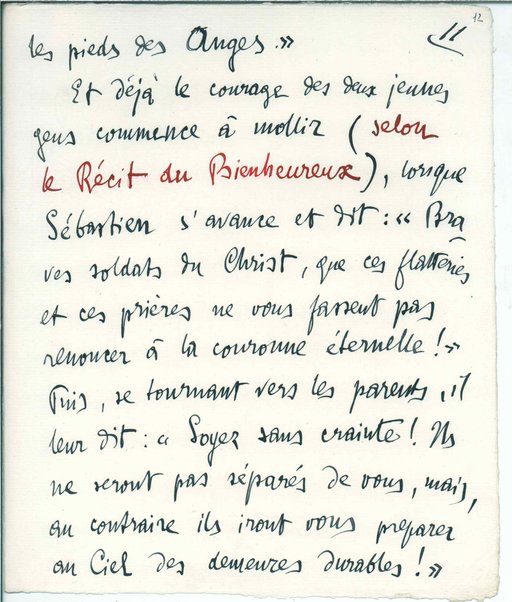 12
11
les pieds des Anges.»
Et déjà le courage des deux jeunes
gens commence à mollir (selon
le Récit du Bienheureux), lorsque
Sébastien s'avance et dit : « Bra
ves soldats du Christ, que ces flatteries
et ces prières ne vous fassent pas
renoncer à la couronne éternelle ! »
Puis, se tournant vers les parents, il
leur dit : « Soyez sans crainte ! Ils
ne seront pas séparés de vous, mais,
au contraire ils iront vous préparer
au Ciel des demeures durables ! »